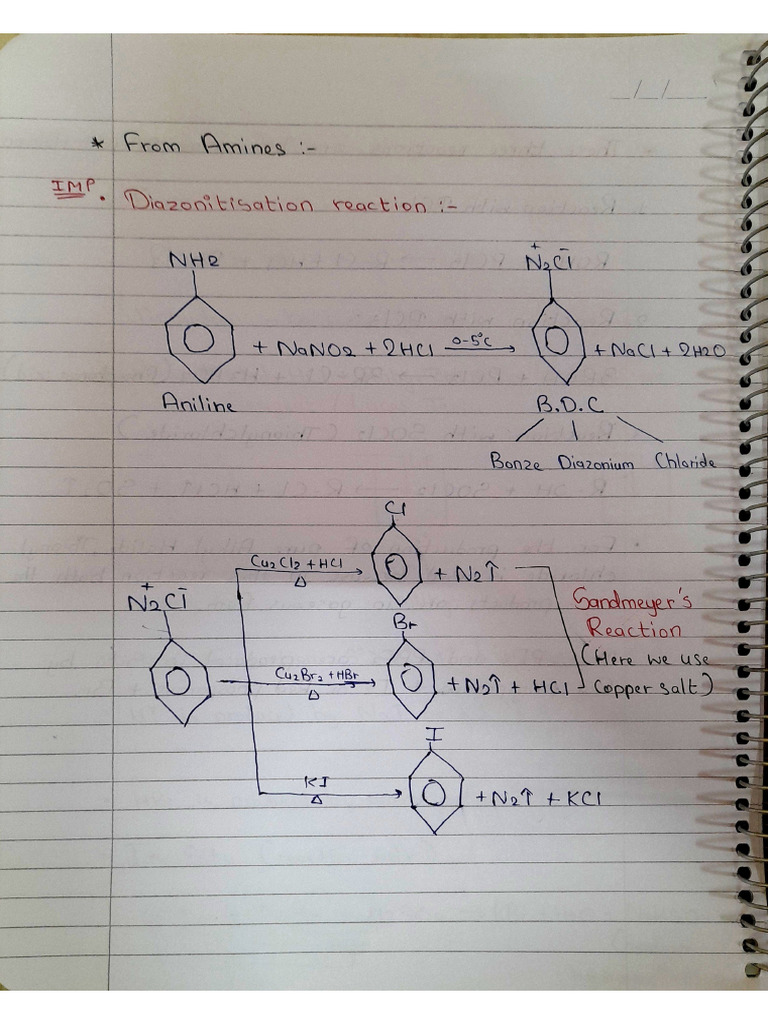 _/_/_
* From Amines :-
IMP. Diazonitisation reaction :-
NH2
+ NaNO2 + 2HCl 0-5°C →
Aniline
+ -
N2Cl
+ NaCl + 2H2O
B.D.C
Bonze Diazonium Chloride
+ -
N2Cl
Cu2Cl2 + HCl → Δ
Cl
+ N2↑
Cu2Br2 + HBr → Δ
Br
+ N2↑ + HCl
Sandmeyer's
Reaction
(Here we use
copper salt)
KI → Δ
I
+ N2↑ + KCl